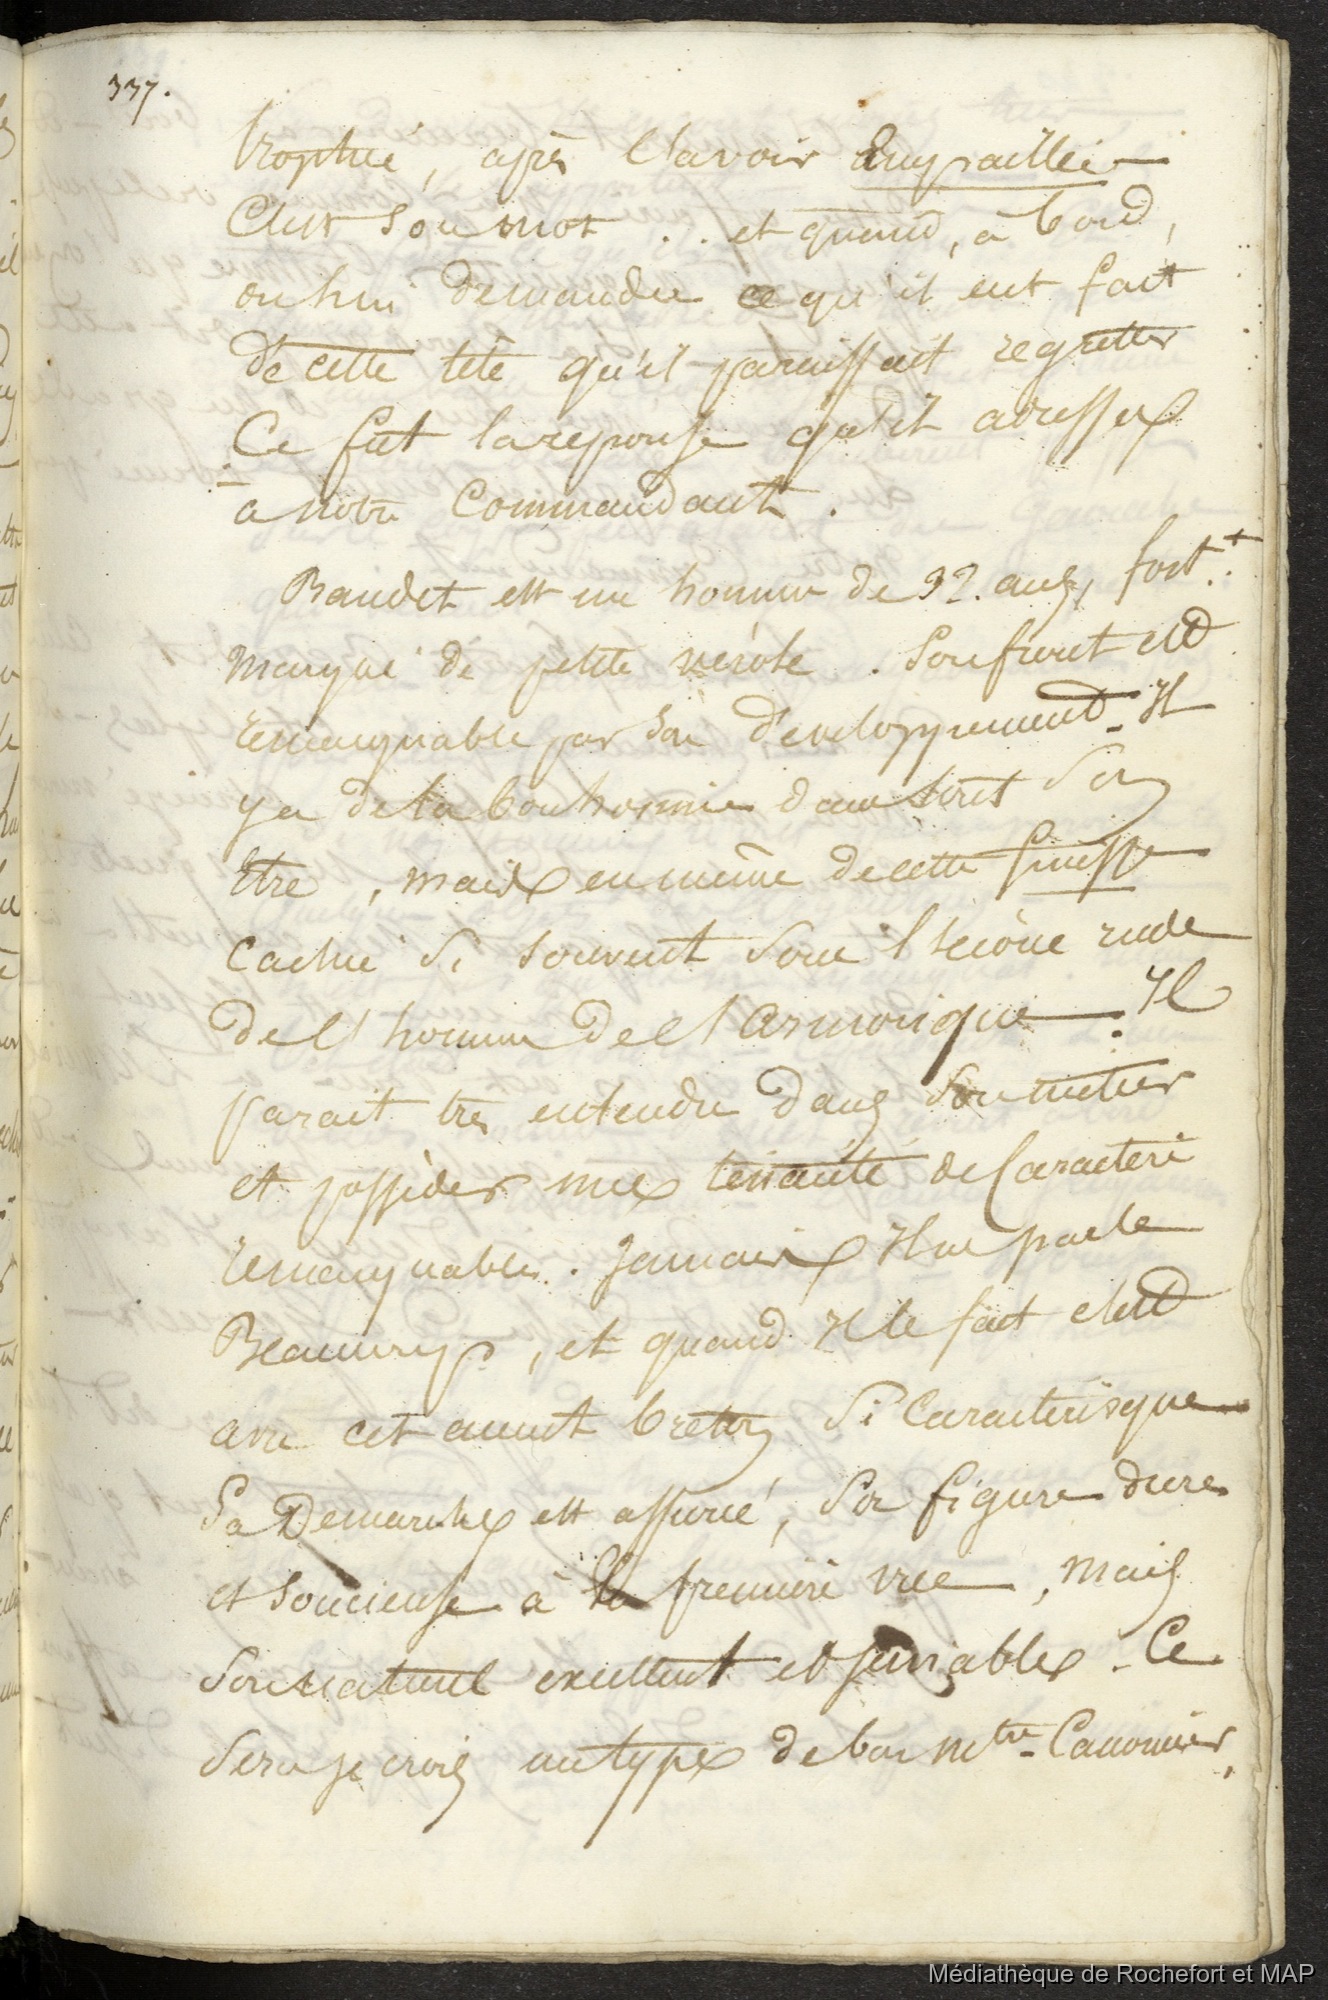 337.
trophée, après l'avoir Empaillée
C'est son mot . . et quand, à bord,
on lui demanda ce qu'il eut fait
de cette tête qu'il paraissait regretter
Ce fut la reponse qu'il adressa
a notre Commandant.
Baudet est un homme de 32. ans, fort.t
marqué de petite verole. Son front est
remarquable par son developpement. Il
y a de la bonhomie dans tout son
Etre, mais en même de cette finesse
cachée si souvent sous l'écorce rude
de l'homme de l'armorique. Il
parait tres entendu dans son metier
et posséder une ténacité de Caractère
remarquable. Jamais Il ne parle
Beaucoup, et quand Il le fait c'est
avec cet accent breton si Caracterisque
Sa Demarche est assurée, sa figure dure
et soucieuse à la première vue, mais
son naturel excellent et serviable. Ce
sera je crois un type de bon mtre Canonnier,
Médiathèque de Rochefort et MAP